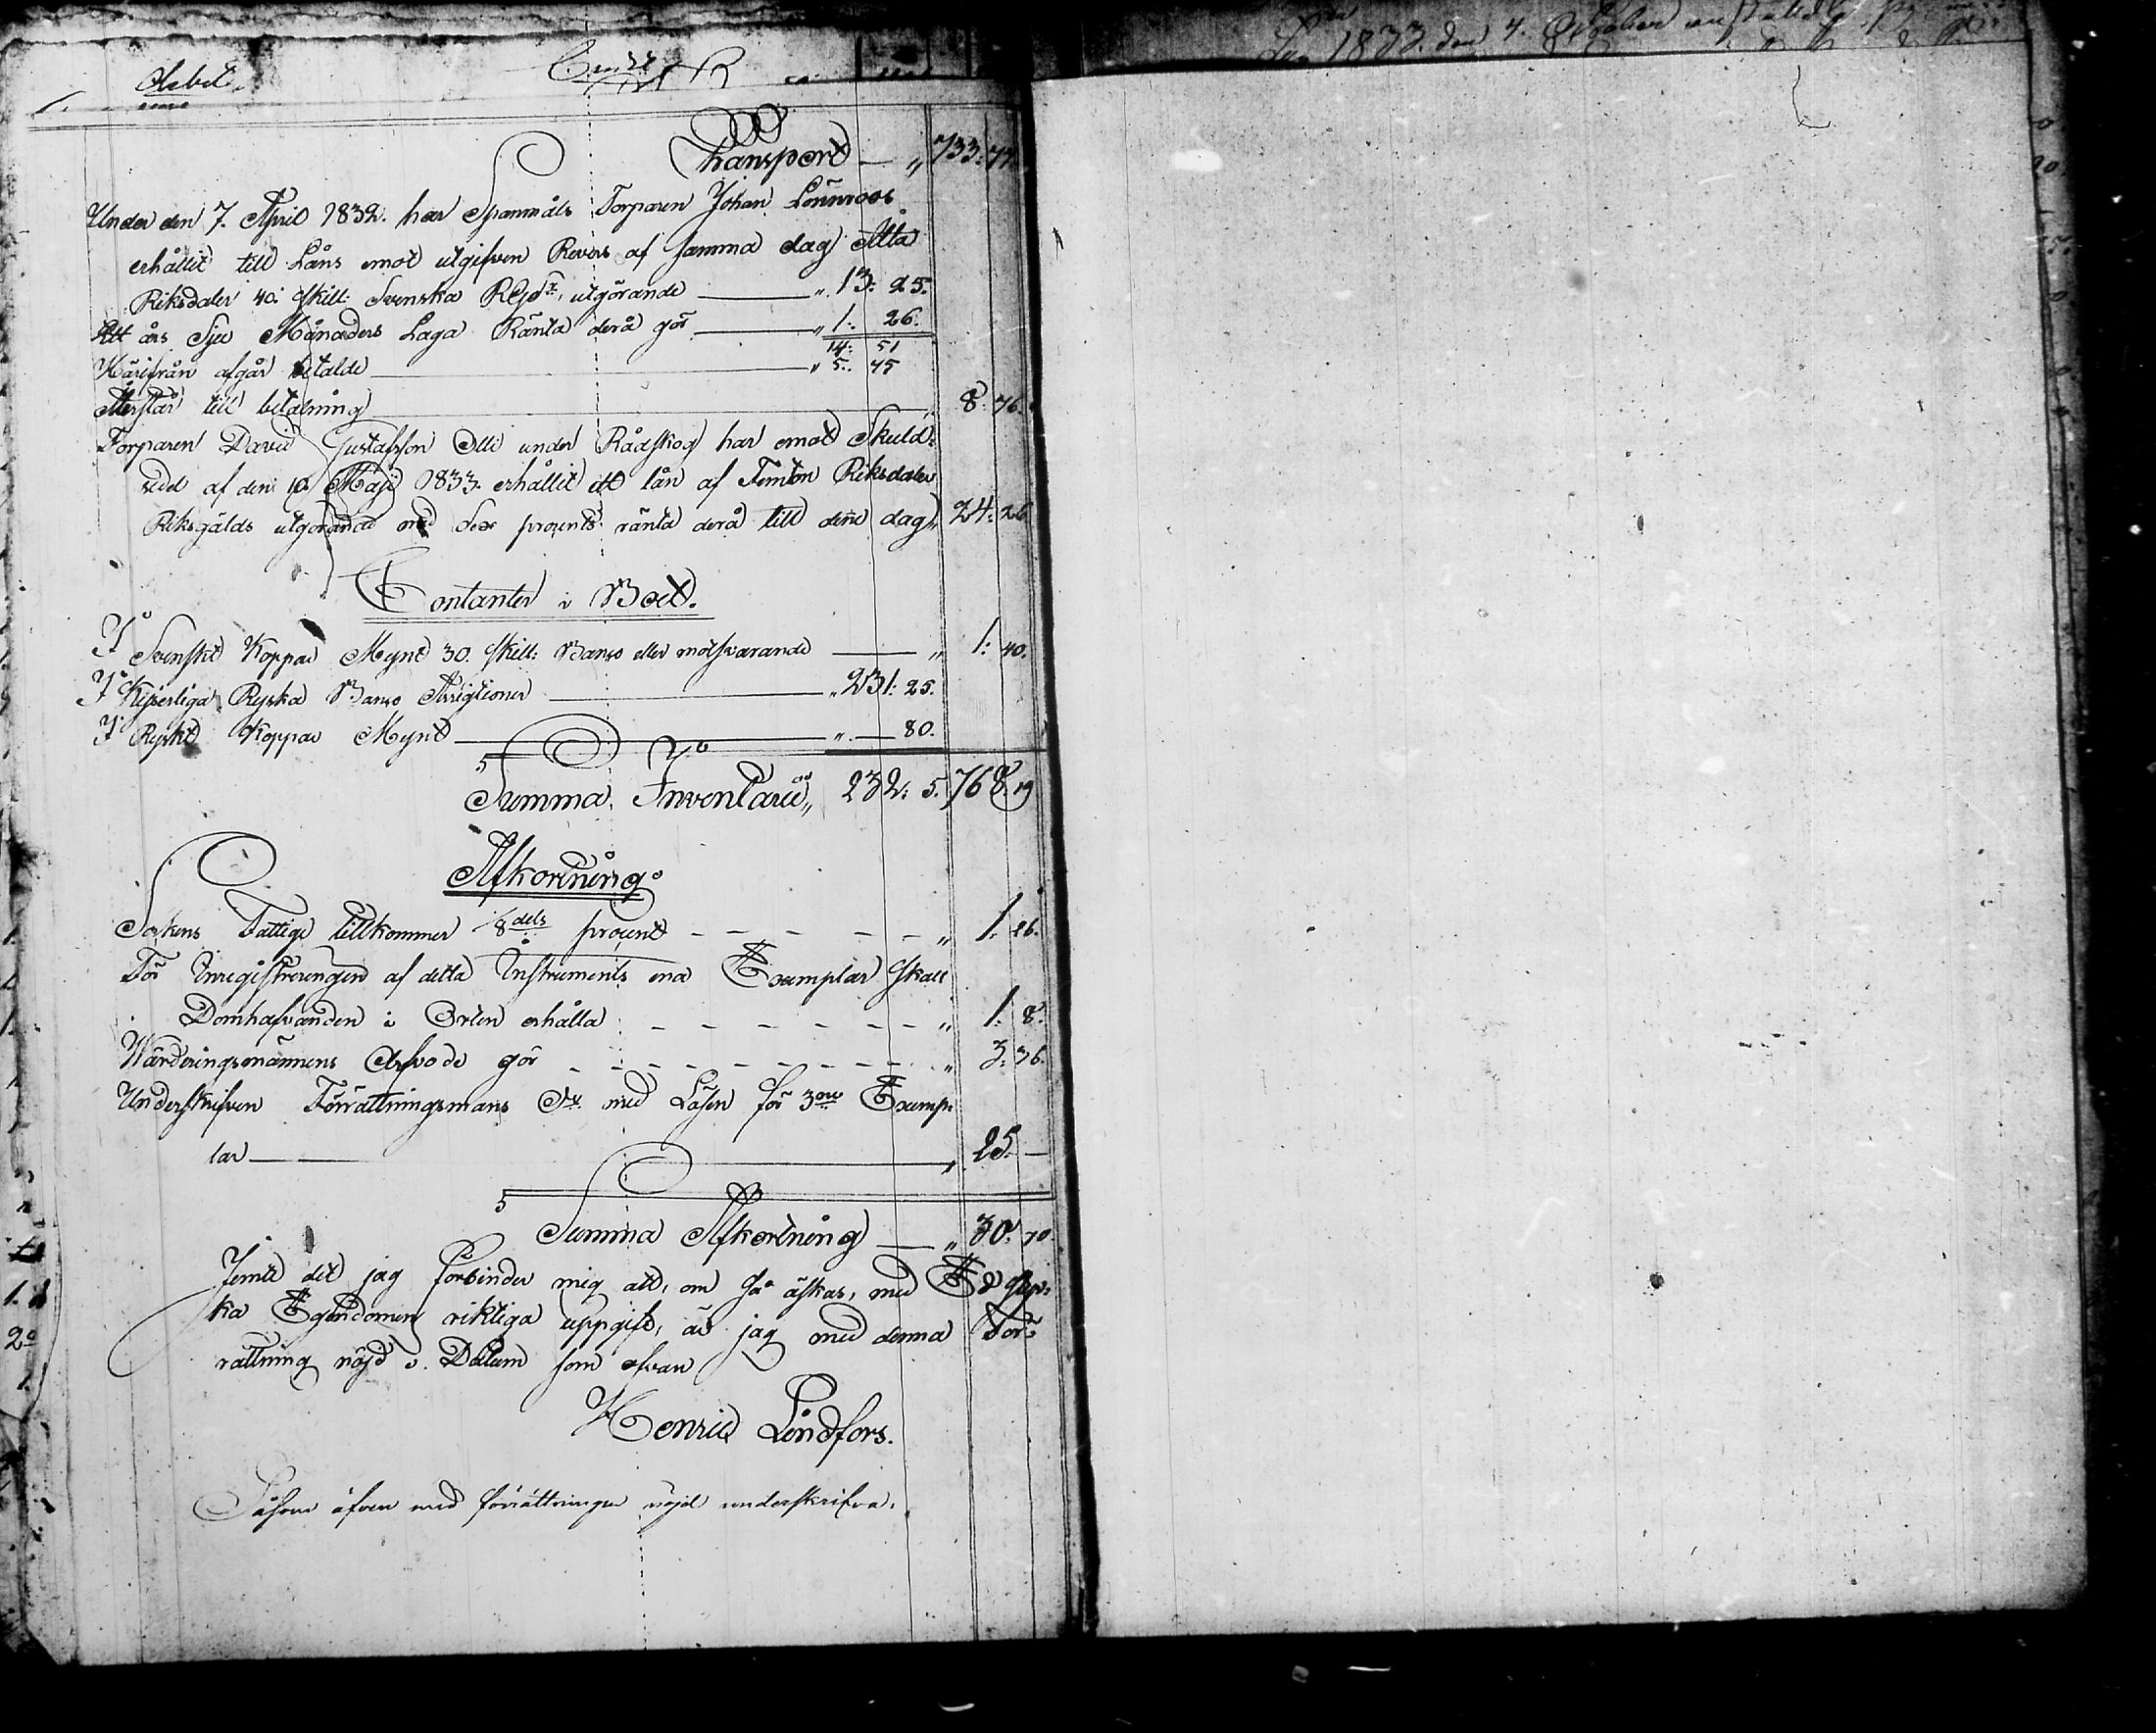 Debet.
Credit
Transport — „ 733: 77.
Under den 7. April 1832. har Spanmåls Torparen Johan Lönnroos
erhållit till Låns emot utgifven Revers af samma dag Åtta
Riksdaler 40. skill: Svenska Rgds, utgörande — „ 13: 25.
Ett års Sju Månaders Laga Ränta derå gör — „ 1: 26.
14: 51
Härifrån afgår betalde — „ 5: 75
Återstår till betalning — 8: 76.
Torparen David Gustafsson Olli under Rådskog har emot Skuld-
sedel af den 10 Maji 1833. erhållit ett lån af Femton Riksdaler
Riksgälds utgörande med Sex procents ränta derå till denne dag „ 24: 26
Contanter i Boet.
I Svenskt Koppar Mynt 30. skill: Banco eller motsvarande — „ 1: 40.
I Kejserliga Ryska Banco Assignationer — „ 231: 25.
I Ryskt Koppar Mynt — „ — 80.
Summa Inventarii „ 232: 5. 768: 19
Afkortning
Sokens Fattige tillkommer 1/8 dels procent — „ 1: 26.
För Inregistreringen af detta Instruments ena Exemplar skall
Domhafvanden i Orten erhålla — „ 1: 8.
Värderingsmännens Arfvode gör — „ 3: 36.
Underskrifven Förrättningsmans Dº med Lösen för 3ne Exemp-
lar — „ 25. —
Summa Afkortning — „ 30: 70.
Jemte det jag förbinder mig att, om så äskas, med Ed styr-
ka Egendomens riktiga uppgift, är jag med denna För-
rättning nöjd. Datum som ofvan
Henric Lindfors.
Såsom äfven med förrättningen nöjd underskrifva.
1833. den 4. October